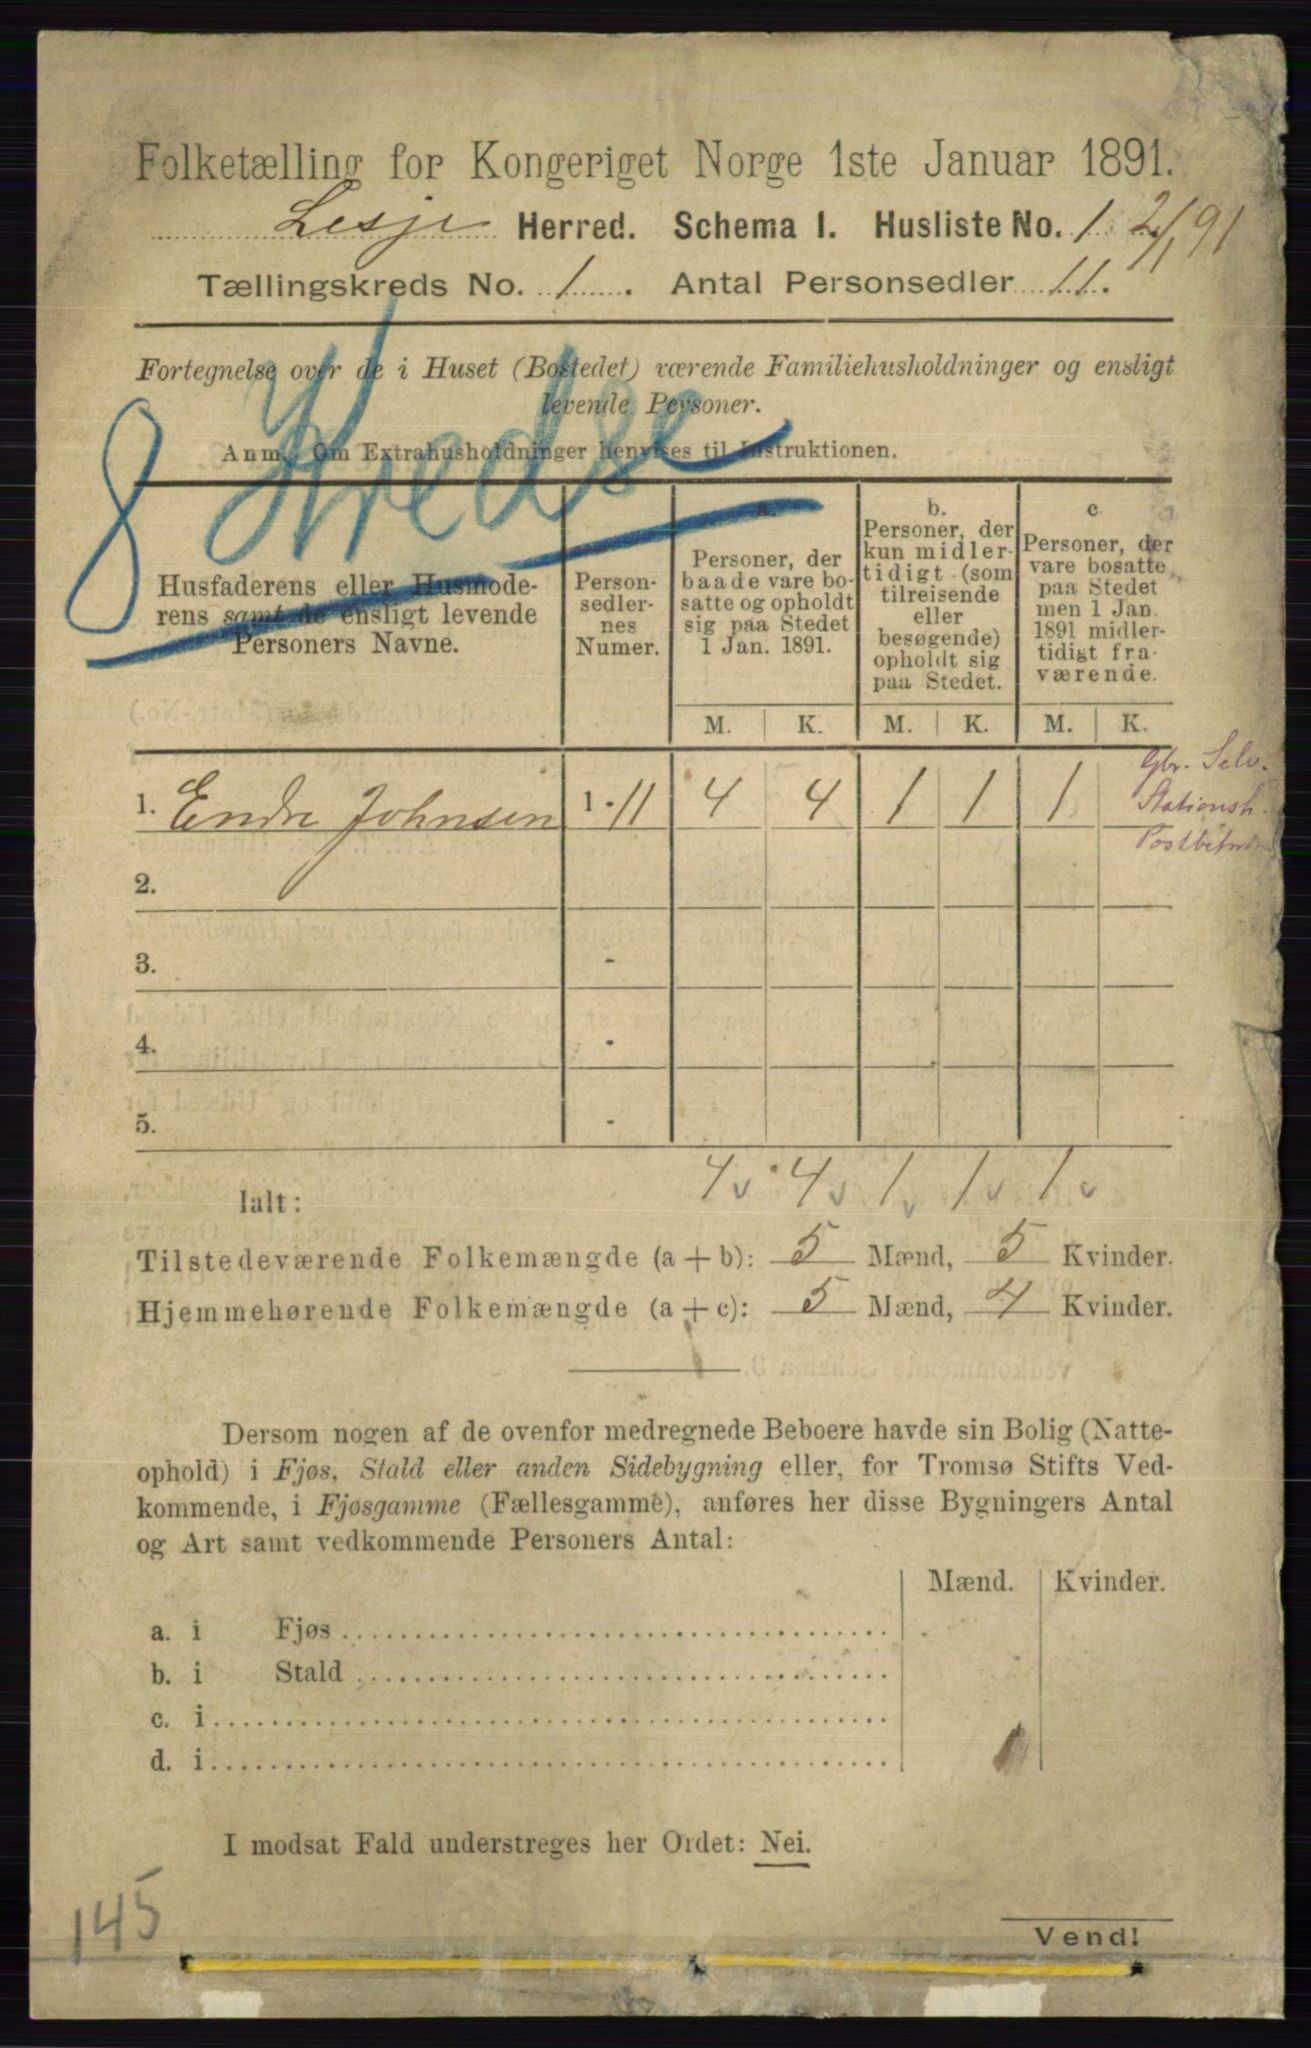 Folketælling for Kongeriget Norge 1ste Januar 1891.
Lesje Herred. Schema I. Husliste No. 1 2/1 91
Tællingskreds No. 1. Antal Personsedler 11.
Fortegnelse over de i Huset (Bostedet) værende Familiehusholdninger og ensligt
levende Personer.
Anm. Om Extrahusholdninger henvises til Instruktionen.
8 Kredse
Husfaderens eller Husmode-
rens samt de ensligt levende
Personers Navne.
Person-
sedler-
nes
Numer.
a.
Personer, der
baade vare bo-
satte og opholdt
sig paa Stedet
1 Jan. 1891.
b.
Personer, der
kun midler-
tidigt (som
tilreisende
eller
besøgende)
opholdt sig
paa Stedet.
c
Personer, der
vare bosatte
paa Stedet
men 1 Jan.
1891 midler-
tidigt fra-
værende.
M. K. M. K. M. K.
1. Endre Johnsen 1 - 11 4 4 1 1 1
Gbr. Selv.
Stationsh.
2.
3. -
4. -
5. -
Ialt: 4 4 1 1 1
Tilstedeværende Folkemængde (a + b): 5 Mænd, 5 Kvinder.
Hjemmehørende Folkemængde (a + c): 5 Mænd, 4 Kvinder.
Dersom nogen af de ovenfor medregnede Beboere havde sin Bolig (Natte-
ophold) i Fjøs, Stald eller anden Sidebygning eller, for Tromsø Stifts Ved-
kommende, i Fjøsgamme (Fællesgamme), anføres her disse Bygningers Antal
og Art samt vedkommende Personers Antal:
Mænd. Kvinder.
a. i Fjøs
b. i Stald
c. i
d. i
I modsat Fald understreges her Ordet: Nei.
145
Vend!